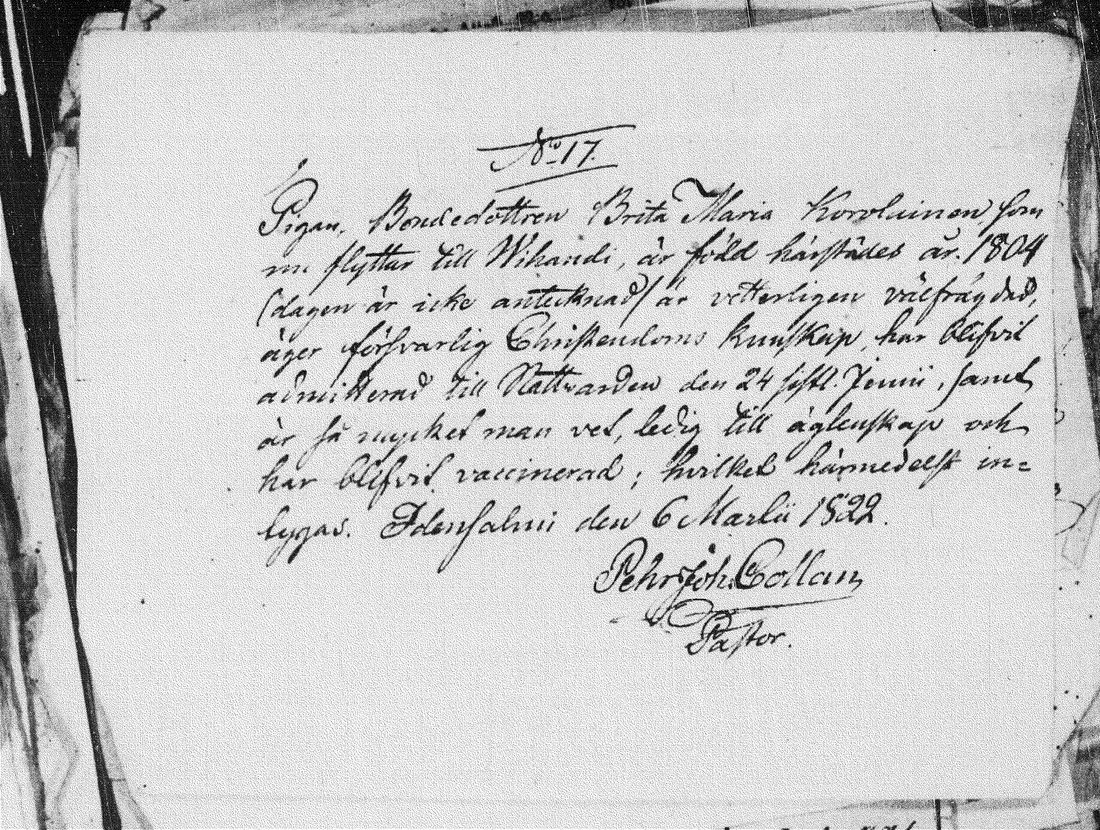 No 17.
Pigan, Bondedottren Brita Maria Korolainen som
nu flyttar till Wihandi, är född härstädes år. 1804
(dagen är icke antecknad) är vetterligen välfrägdad,
äger försvarlig Christendoms kunskap, har blifvit
admitterad till Nattvarden den 24 sistl. Junii, samt
är så mycket man vet, ledig till äglenskap och
har blifvit vaccinerad; hvilket härmedelst in=
tygas. Idensalmi den 6 Martii 1822.
Pehr Joh. Collan
Pastor.